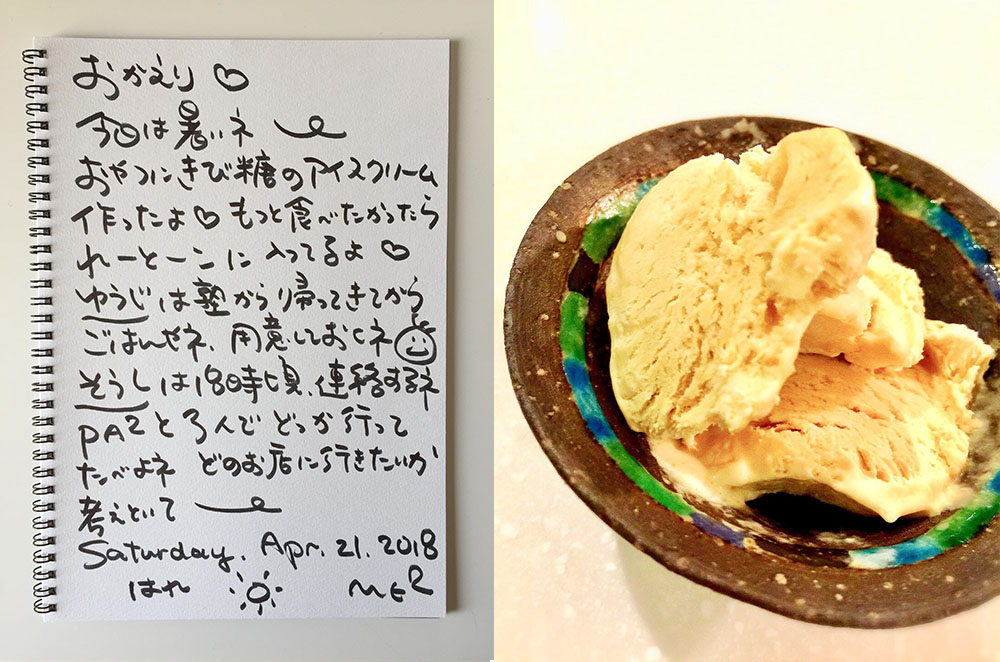 おかえり♡
今日は暑いネ
おやつにきび糖のアイスクリーム
作ったよ♡ もっと食べたかったら
れーとーこに入ってるよ♡
ゆうじは塾から帰ってきてから
ごはんやネ、用意しておくネ
そうしは18時頃、連絡するネ
PA2と3人でどっか行って
たべよネ どのお店に行きたいか
考えといて
Saturday. Apr. 21. 2018
はれ ME2